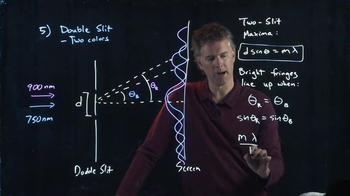 5) Double Slit
- Two colors
900 nm
750 nm
d
θ_B
θ_R
Double Slit
Screen
Two-Slit
Maxima:
d sinθ = mλ
Bright fringes
line up when:
θ_R = θ_B
sinθ_R = sinθ_B
m λ